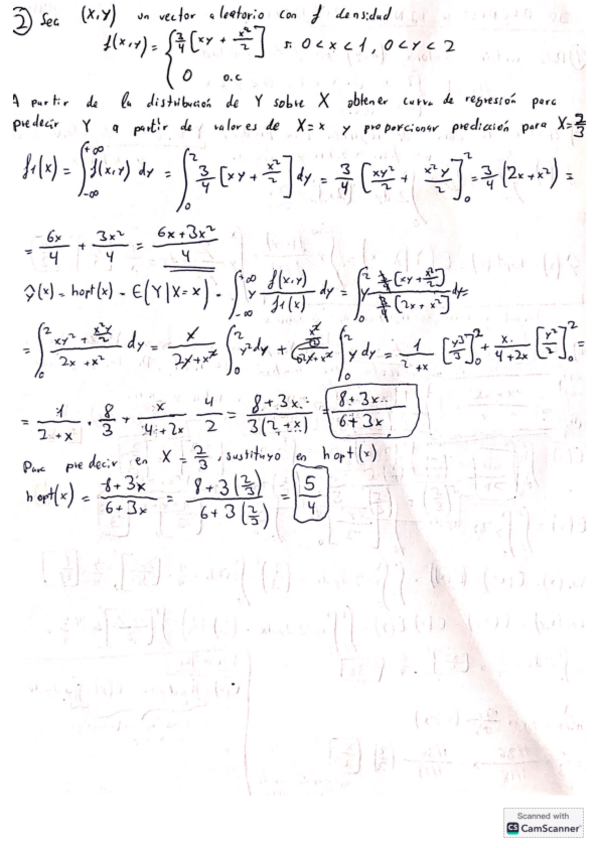 ② Sea (X,Y) un vector aleatorio con f densidad
f(x,y) = { 3/4 [xy + x²/2] si 0 < x < 1, 0 < y < 2
0 o.c
A partir de la distribución de Y sobre X obtener curva de regresión para
predecir Y a partir de valores de X=x y proporcionar predicción para X=2/3
f₁(x) = ∫_{-∞}^{+∞} f(x,y) dy = ∫_0^2 3/4 [xy + x²/2] dy = 3/4 [xy²/2 + x²y/2]_0^2 = 3/4 (2x+x²) =
= 6x/4 + 3x²/4 = 6x+3x²/4
ŷ(x) = hopt(x) = E(Y|X=x) = ∫_{-∞}^{+∞} y f(x,y)/f₁(x) dy = ∫_0^2 y 3/4 [xy + x²/2] / 3/4 [2x + x²] dy =
= ∫_0^2 xy² + x²y/2 / 2x + x² dy = x/2x+x² ∫_0^2 y² dy + ∫_0^2 y dy = 1/2+x [y³/3]_0^2 + x/4+2x [y²/2]_0^2 =
= 1/2+x · 8/3 + x/4+2x · 4/2 = 8+3x/3(2+x) = 8+3x/6+3x
Para predecir en X = 2/3, sustituyo en hopt(x)
hopt(x) = 8+3x/6+3x = 8+3(2/3)/6+3(2/3) = 5/4
Scanned with
CS CamScanner